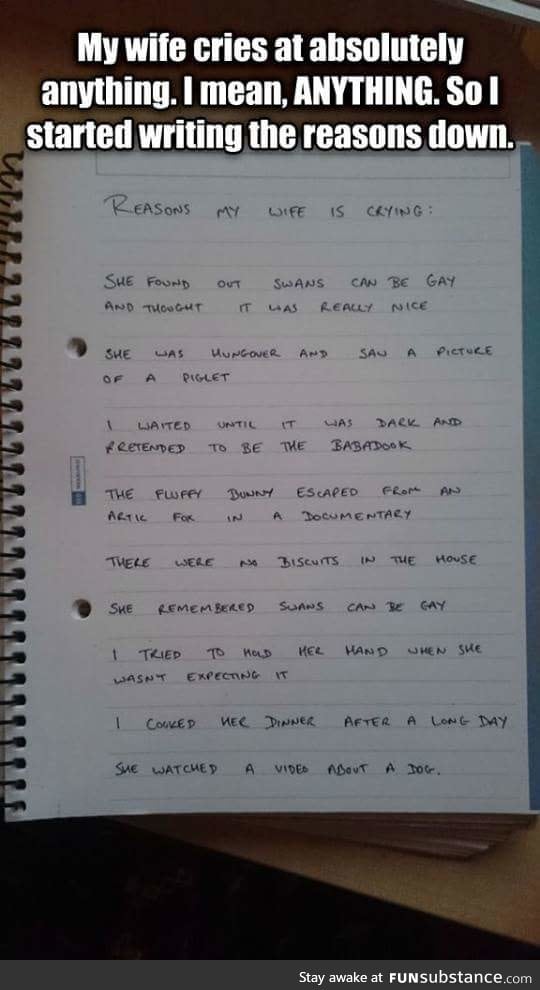 My wife cries at absolutely
anything. I mean, ANYTHING. So I
started writing the reasons down.
REASONS MY WIFE IS CRYING:
SHE FOUND OUT SWANS CAN BE GAY
AND THOUGHT IT WAS REALLY NICE
SHE WAS HUNGOVER AND SAW A PICTURE
OF A PIGLET
I WAITED UNTIL IT WAS DARK AND
PRETENDED TO BE THE BABADOOK
THE FLUFFY BUNNY ESCAPED FROM AN
ARTIC FOX IN A DOCUMENTARY
THERE WERE NO BISCUITS IN THE HOUSE
SHE REMEMBERED SWANS CAN BE GAY
I TRIED TO HOLD HER HAND WHEN SHE
WASNT EXPECTING IT
I COOKED HER DINNER AFTER A LONG DAY
SHE WATCHED A VIDEO ABOUT A DOG.
Stay awake at FUNsubstance.com